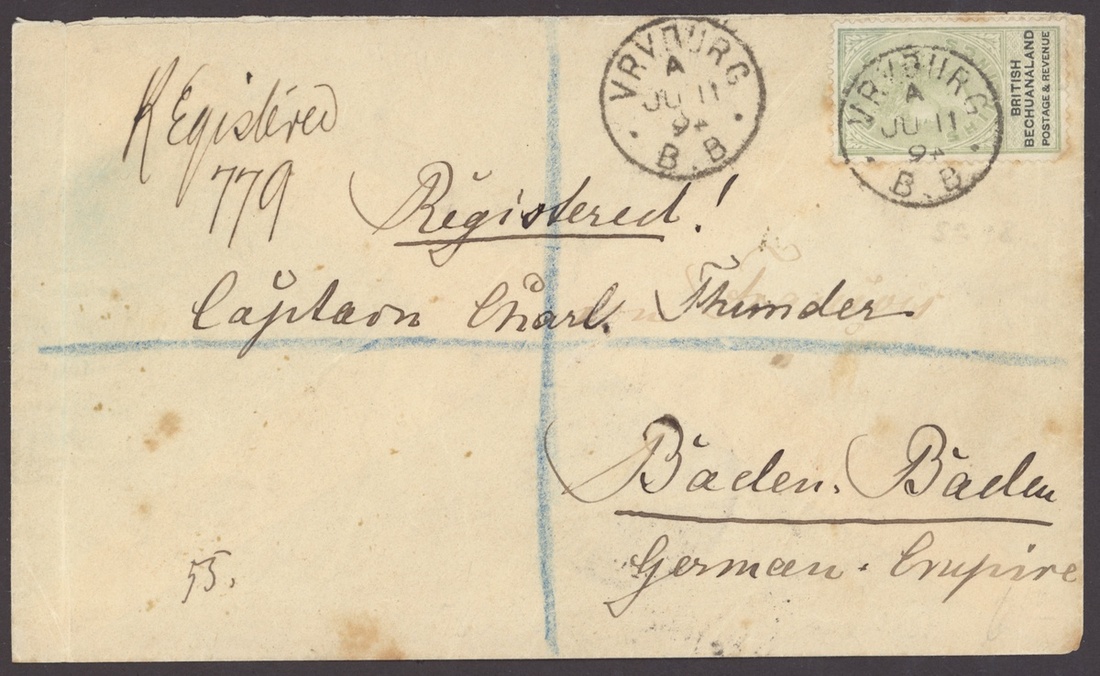 VRYBURG
A
JU 11
94
B.B
VRYBURG
A
JU 11
94
B.B
BRITISH
BECHUANALAND
POSTAGE & REVENUE
Registered
779
Registered!
Captain Charl. Thunder
Baden. Baden
German. Empire
55.